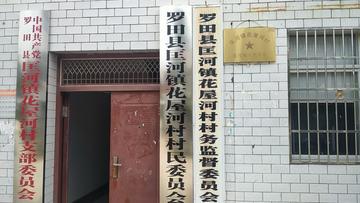 中国共产党
罗田县
匡河镇花屋河村支部委员会
罗田县匡河镇花屋河村村民委员会
罗田县匡河镇花屋河村村务监督委员会